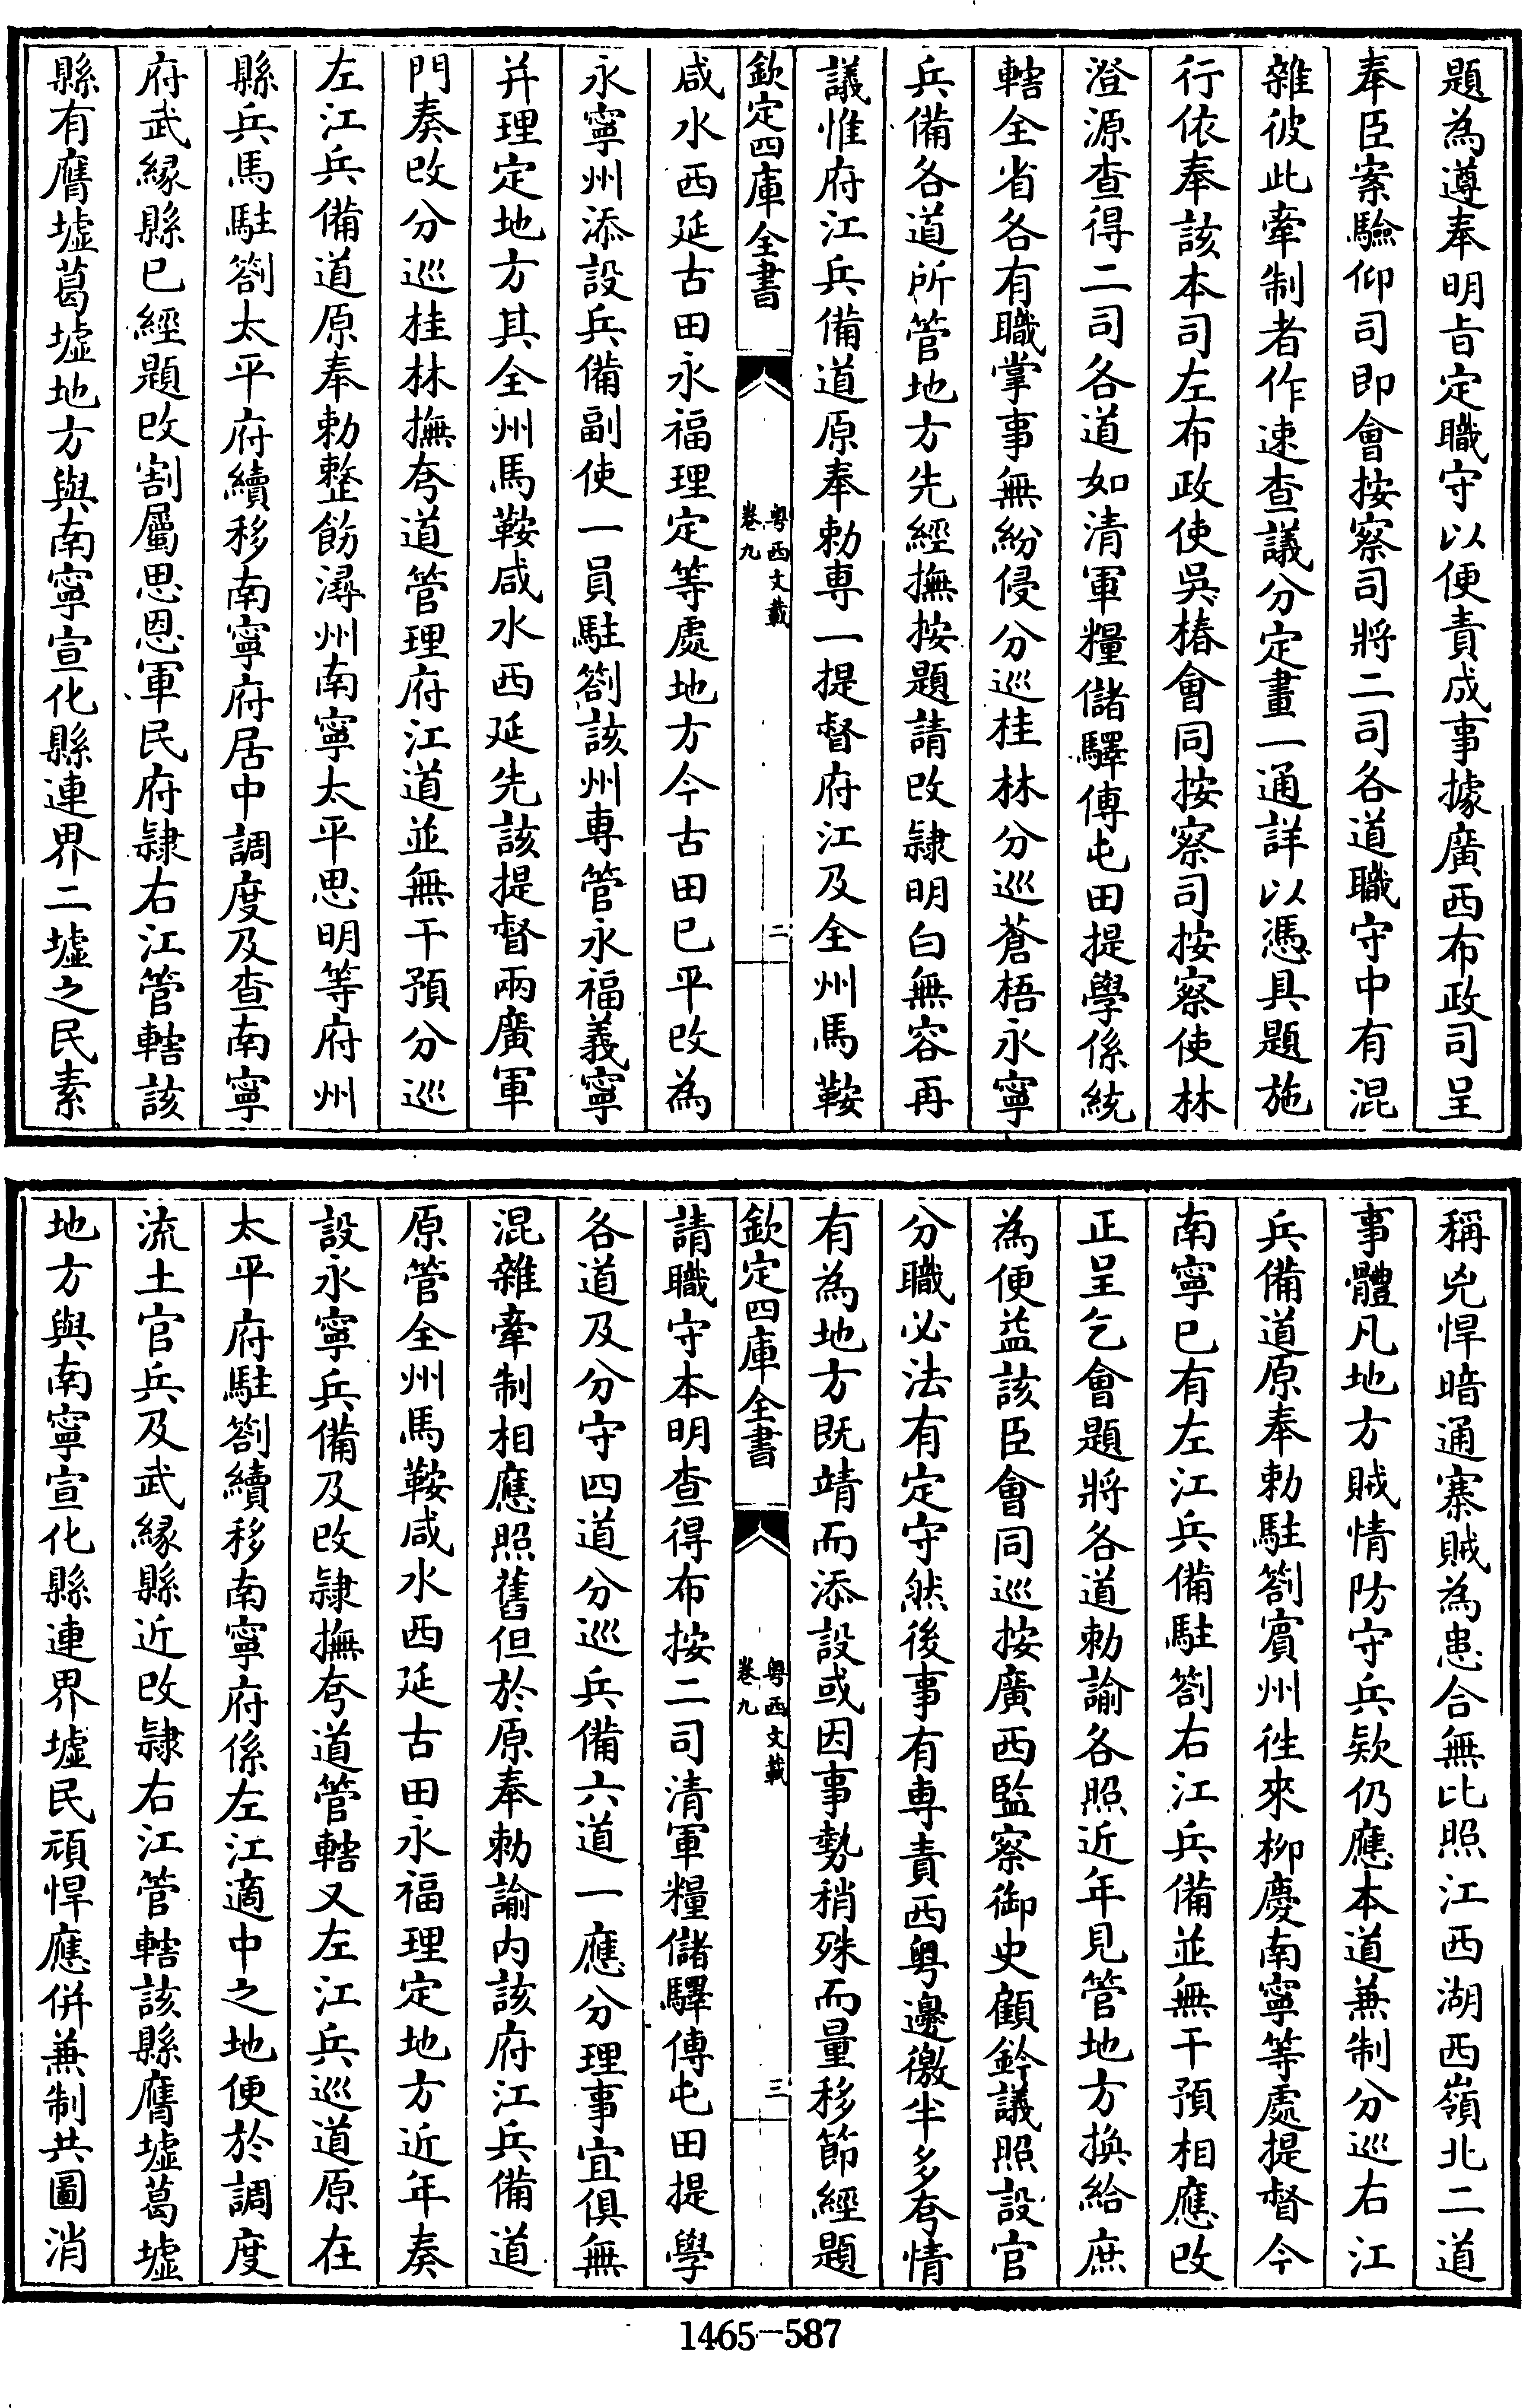 題為遵奉明旨定職守以便責成事據廣西布政司呈
奉臣案驗仰司即會按察司將二司各道職守中有混
雜彼此牽制者作速查議分定畫一通詳以憑具題施
行依奉該本司左布政使吳椿會同按察司按察使林
澄源查得二司各道如清軍糧儲驛傳屯田提學係統
轄全省各有職掌事無紛侵分巡桂林分巡蒼梧永寧
兵備各道所管地方先經撫按題請改隷明白無容再
議惟府江兵備道原奉勅專一提督府江及全州馬鞍
欽定四庫全書
粤西文載
卷九
二
咸水西延古田永福理定等處地方今古田已平改為
永寧州添設兵備副使一員駐劄該州專管永福義寧
并理定地方其全州馬鞍咸水西延先該提督兩廣軍
門奏改分巡桂林撫夸道管理府江道並無干預分巡
左江兵備道原奉勅整飭潯州南寧太平思明等府州
縣兵馬駐劄太平府續移南寧府居中調度及查南寧
府武緣縣已經題改割屬思恩軍民府隷右江管轄該
縣有膺墟葛墟地方與南寧宣化縣連界二墟之民素
稱兇悍暗通寨賊為患合無比照江西湖西嶺北二道
事體凡地方賊情防守兵欵仍應本道兼制分巡右江
兵備道原奉勅駐劄賓州徃來柳慶南寧等處提督今
南寧已有左江兵備駐劄右江兵備並無干預相應改
正呈乞會題將各道勅諭各照近年見管地方換給庶
為便益該臣會同巡按廣西監察御史顧鈐議照設官
分職必法有定守然後事有專責西粤邊徼半多夸情
有為地方既靖而添設或因事勢稍殊而量移節經題
欽定四庫全書
粤西文載
卷九
三
請職守本明查得布按二司清軍糧儲驛傳屯田提學
各道及分守四道分巡兵備六道一應分理事宜俱無
混雜牽制相應照舊但於原奉勅諭内該府江兵備道
原管全州馬鞍咸水西延古田永福理定地方近年奏
設永寧兵備及改隷撫夸道管轄又左江兵巡道原在
太平府駐劄續移南寧府係左江適中之地便於調度
流土官兵及武緣縣近改隷右江管轄該縣膺墟葛墟
地方與南寧宣化縣連界墟民頑悍應併兼制共圖消
1465-587